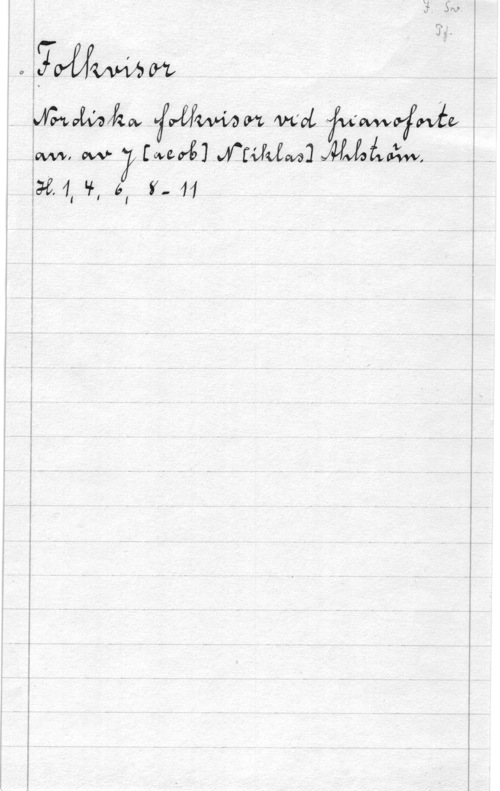 F. Sv.
Pf.
Folkvisor
Nordiska folkvisor vid pianoforte
arr. av J[acob] N[iklas] Ahlström.
H. 1, 4, 6, 8 - 11